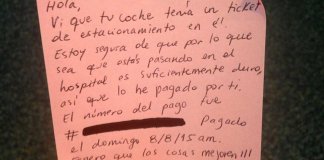 Hola,
Vi que tu coche tenía un ticket
de estacionamiento en él.
Estoy segura de que por lo que
sea que estás pasando en el
hospital es suficientemente duro,
así que lo he pagado por ti.
El número del pago fue
# Pagado
el domingo 8/8/15 am.
que las cosas mejoren!!!